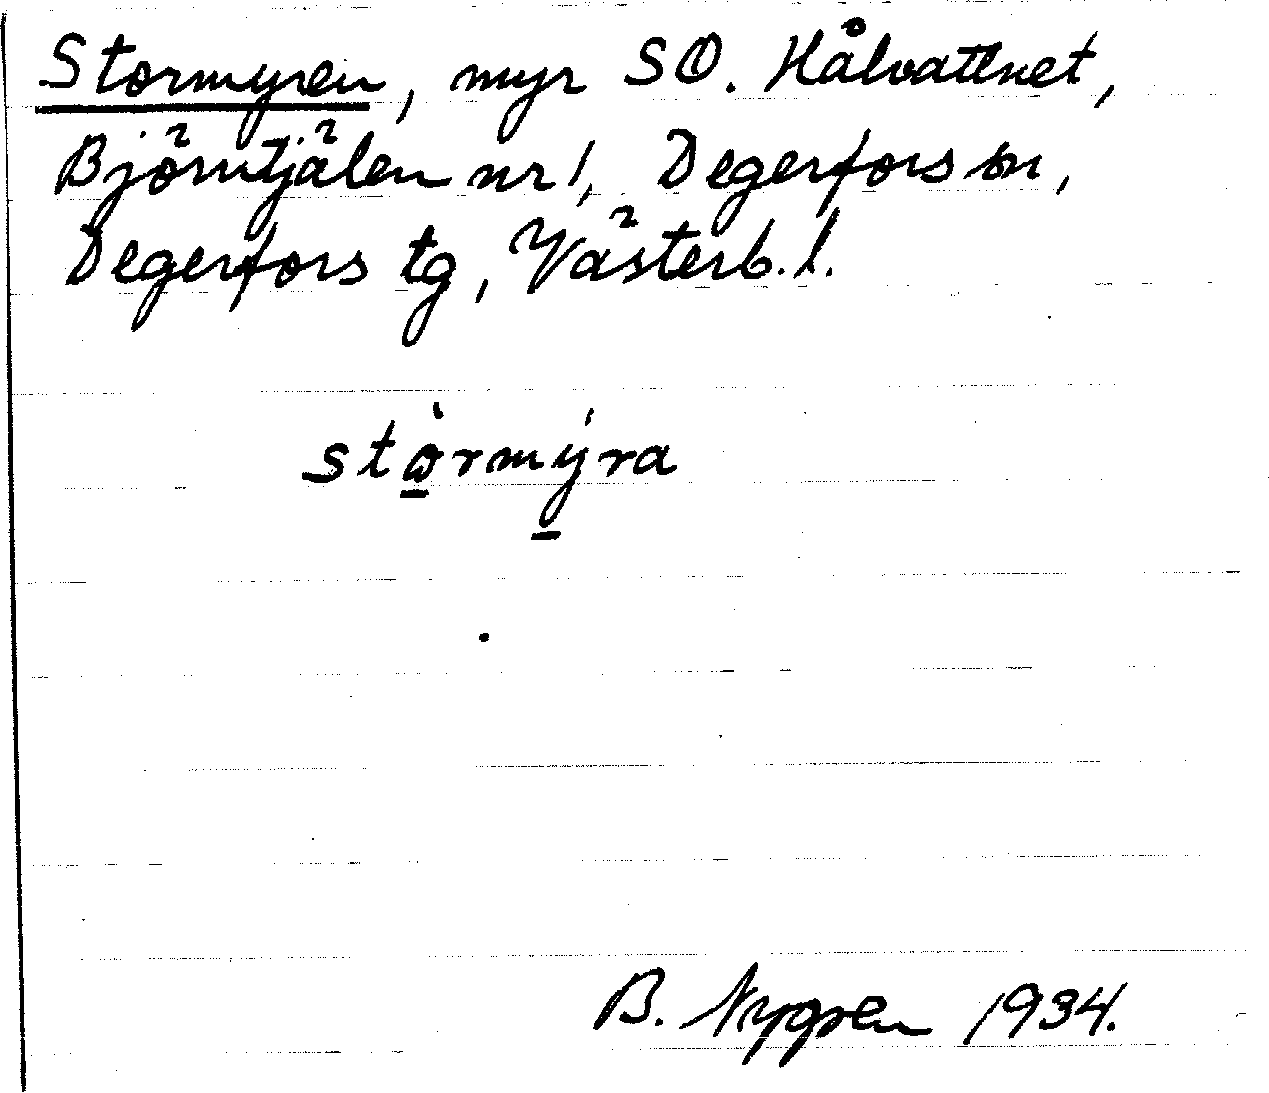 Stormyren, myr SO. Hålvattnet,
Björntjälen nr 1, Degerfors sn,
Degerfors tg, Västerb. l.
stὼrmýra
B. Nygren 1934.